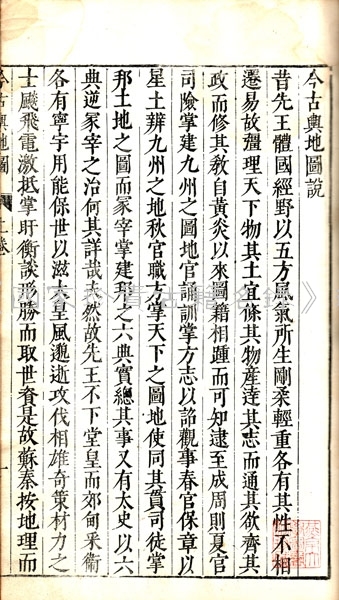 今古輿地圖說
昔先王體國經野以五方風氣所生剛柔輕重各有其性不相
遷易故疆理天下物其土宜條其物産達其志而通其欲齊其
政而修其敎自黃炎以來圖籍相踵而可知逮至成周則夏官
司險掌建九州之圖地官誦訓掌方志以詔觀事春官保章以
星土辨九州之地秋官職方掌天下之圖地使同其貫司徒掌
邦土地之圖而冢宰掌建邦之六典實總其事又有太史以六
典逆冢宰之治何其詳哉夫然故先王不下堂皇而郊甸采衞
各有寧宇用能保世以滋大皇風邈逝攻伐相雄奇策材力之
士飈飛電激抵掌盱衡談形勝而取世資是故蘇秦按地理而
今古輿地圖
上卷
一